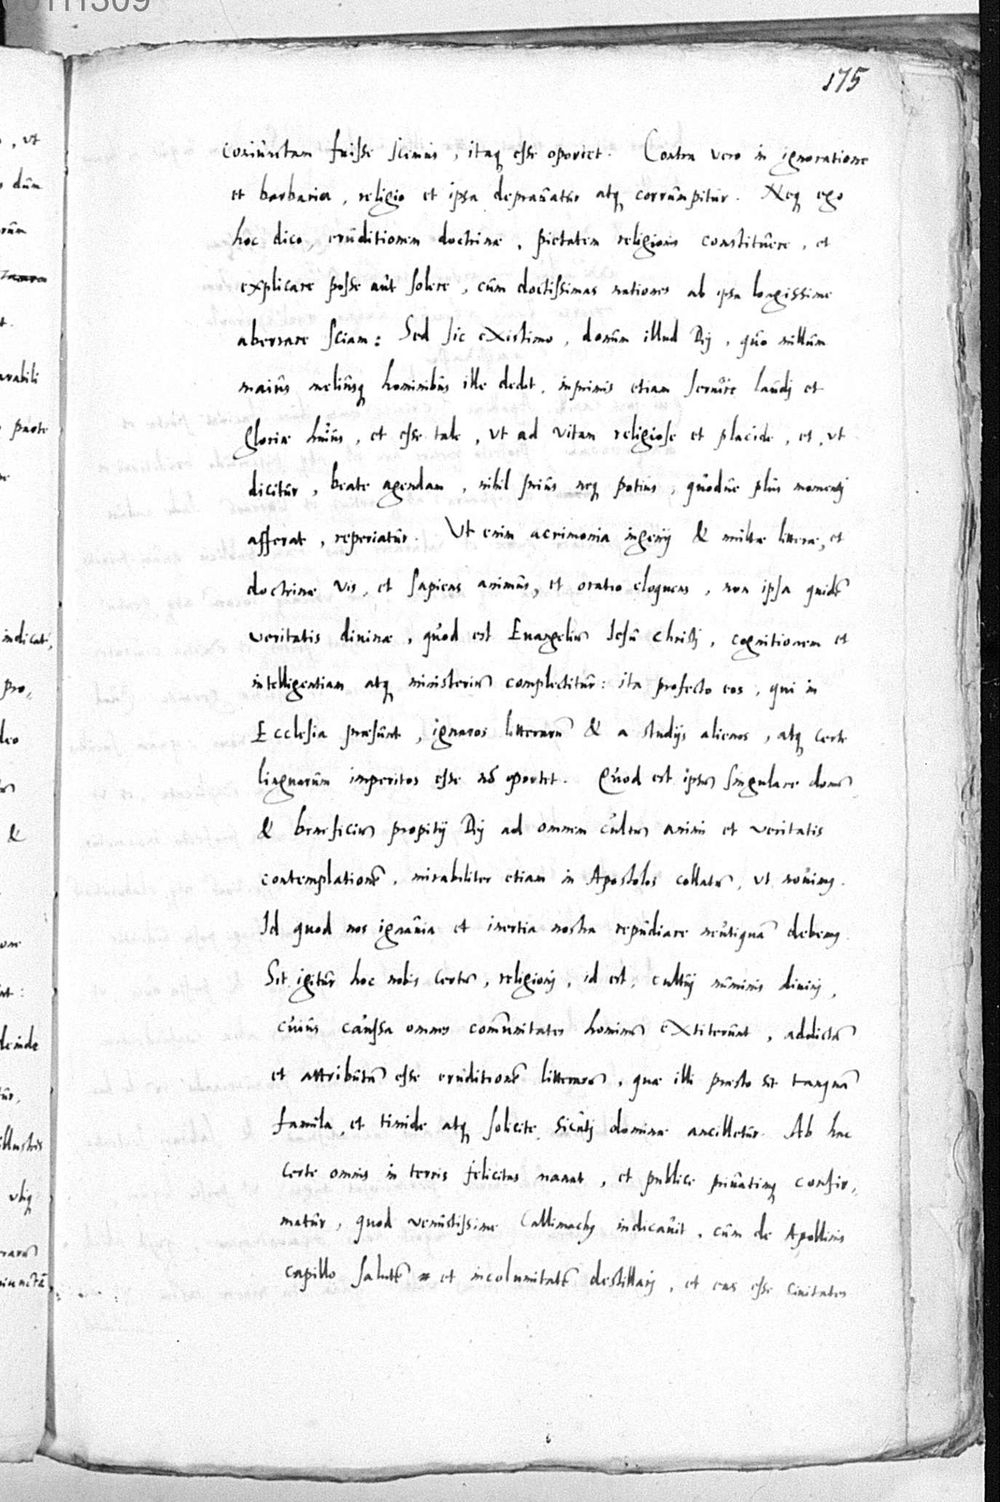 175
coniunctam fuisse scimus, itaq esse oportet. Contra vero in ignoratione
et barbaria, religio et ipsa deprauatur atq corrumpitur. Neq ego
hoc dico, eruditionem doctrinae, pietatem religionis constituere, et
explicare posse aut solere, cum doctissimas nationes ab ipsa longissime
aberrare sciam: Sed sic existimo, donum illud Dij, quo nullum
maius meliusq hominibus ille dedit, inprimis etiam seruire laudj et
gloriae huius, et esse tale, vt ad vitam religiose et placide, et, vt
dicitur, beate agendam, nihil prius neq potius, quodue plus momentj
afferat, reperiatur. Vt enim acrimonia ingenij & multae litterae, et
doctrinae vis, et sapiens animus, et oratio eloquens, non ipsa quidē
veritatis diuinae, quod est Euangeliū Iesu Christj, cognitionem et
intelligentiam atq ministeriū complectitur: ita profecto eos, qui in
Ecclesia praesunt, ignaros litterarū & a studijs alienos, atq certe
linguarum imperitos esse nō oportet. Quod est ipsū singulare donū
& beneficiū propitij Dij ad omnem cultū animi et veritatis
contemplationē, mirabiliter etiam in Apostolos collatū, vt nouimq.
Id quod nos ignauia et inertia nostra repudiare neutiquā debemq.
Sit igitur hoc nobis certū, religionj, id est, cultuj numinis diuinj,
cuius caussa omnes comunitates hominū extiterunt, addictā
et attributā esse eruditionē litterarū, quae illi praesto sit tanquā
famula, et timide atq solicite, sicutj dominae ancilletur. Ab hac
certe omnis in terris felicitas manat, et publice priuatimq confir,
matur, quod venustissime Callimachq indicauit, cum de Apollinis
capillo salutē et incolumitatē destillarj, et eas esse ciuitates